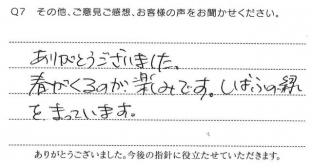 Q7 その他、ご意見ご感想、お客様の声をお聞かせください。
ありがとうございました。
春がくるのが楽しみです。しばふの緑
をまっています。
ありがとうございました。今後の指針に役立たせていただきます。